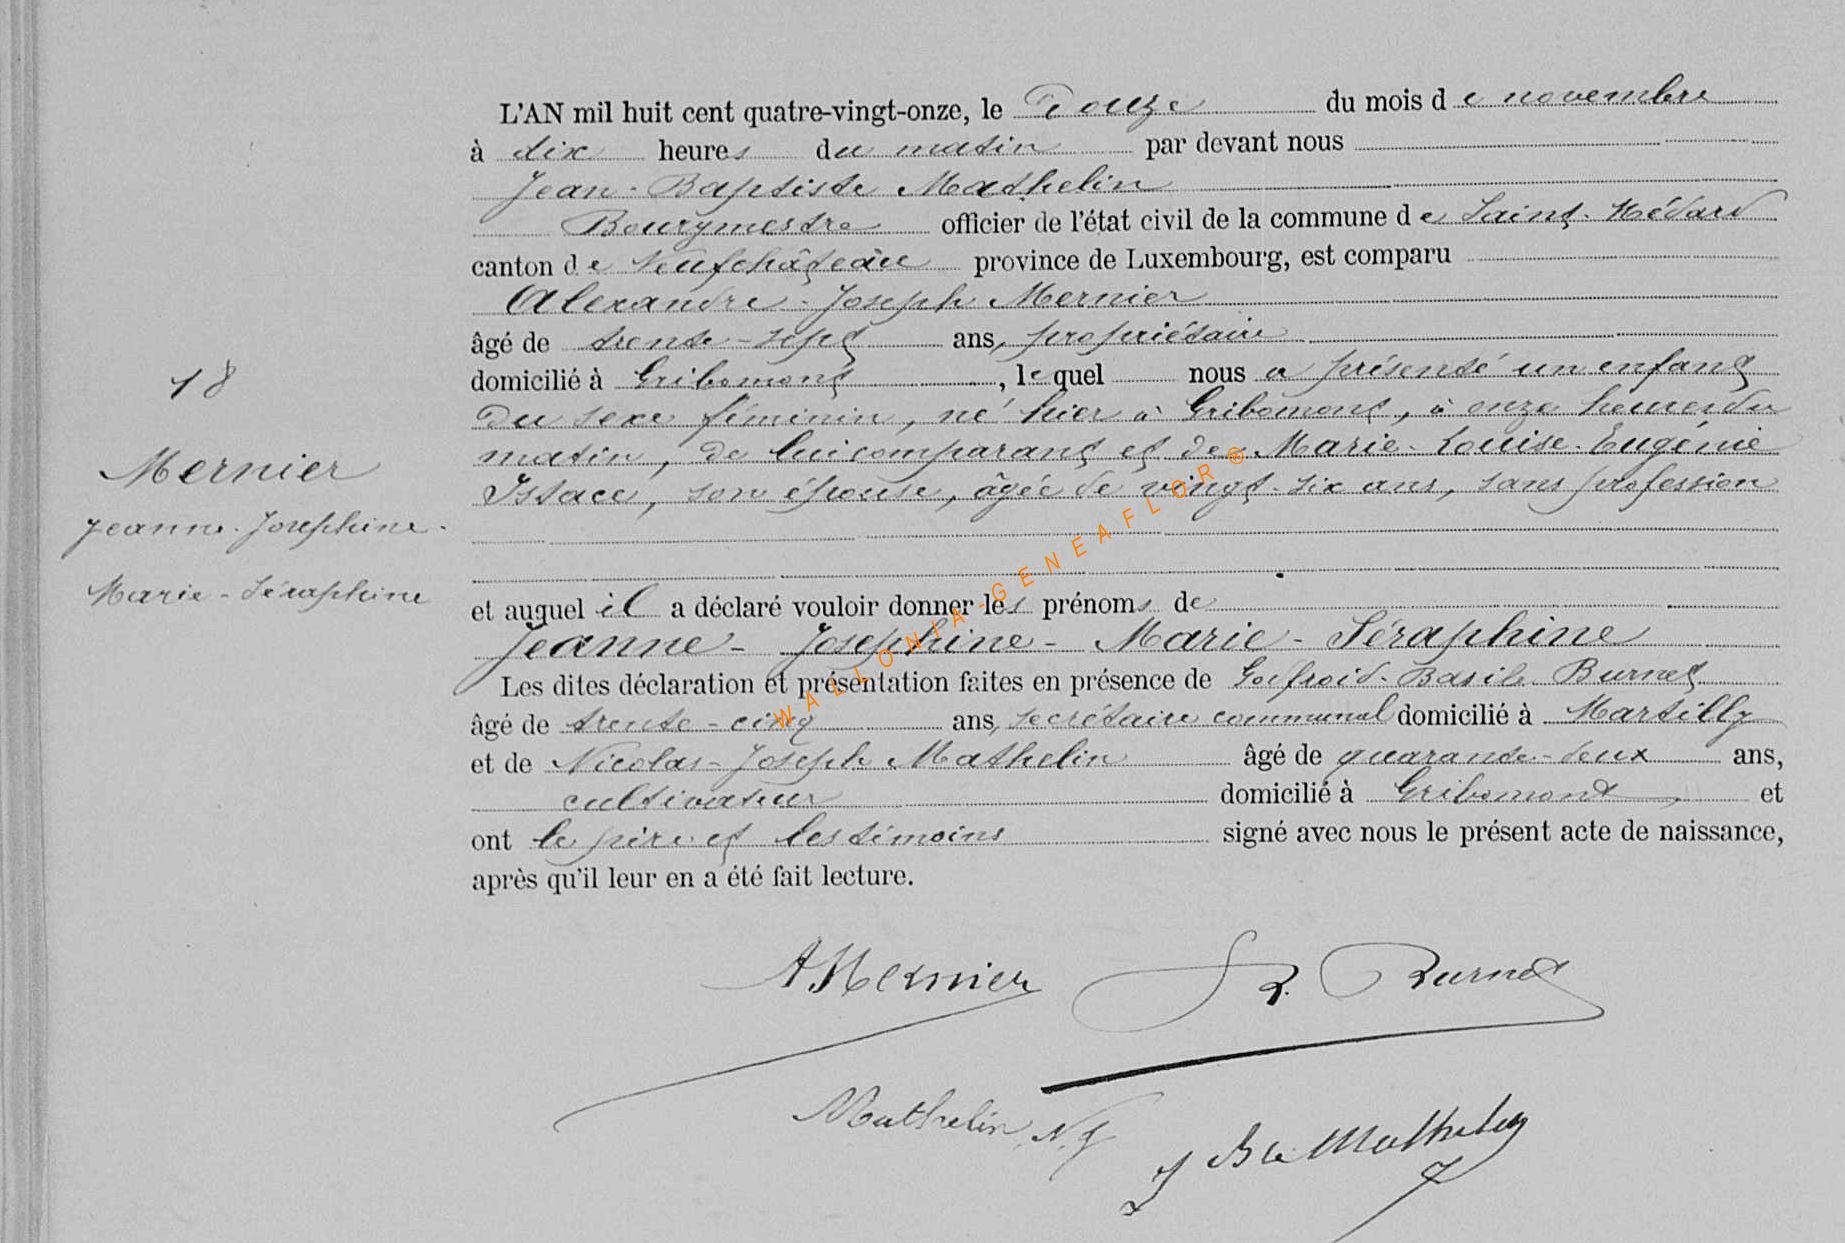 L'AN mil huit cent quatre-vingt-onze, le Douze du mois de novembre
à dix heures du matin par devant nous
Jean-Baptiste Mathelin
Bourgmestre officier de l'état civil de la commune de Saint-Médard
canton de Neufchâteau province de Luxembourg, est comparu
Alexandre-Joseph Mernier
âgé de trente-sept ans, propriétaire
domicilié à Gribomont, lequel nous a présenté un enfant
du sexe féminin, né hier à Gribomont, à onze heures du
matin, de lui comparant et de Marie-Louise-Eugénie
Issace, son épouse, âgée de vingt-six ans, sans profession
et auquel il a déclaré vouloir donner les prénoms de
Jeanne-Josephine-Marie-Séraphine
Les dites déclaration et présentation faites en présence de Gofroid-Basile Burnet
âgé de trente-cinq ans, secrétaire communal domicilié à Martilly
et de Nicolas-Joseph Mathelin âgé de quarante-deux ans,
cultivateur domicilié à Gribomont, et
ont le père et les témoins signé avec nous le présent acte de naissance,
après qu'il leur en a été fait lecture.
18
Mernier
Jeanne-Josephine-
Marie-Séraphine
WALLONIA-GENEAFLOR®
A Mernier
Burnet
Mathelin, N. J
J Bte Mathelin